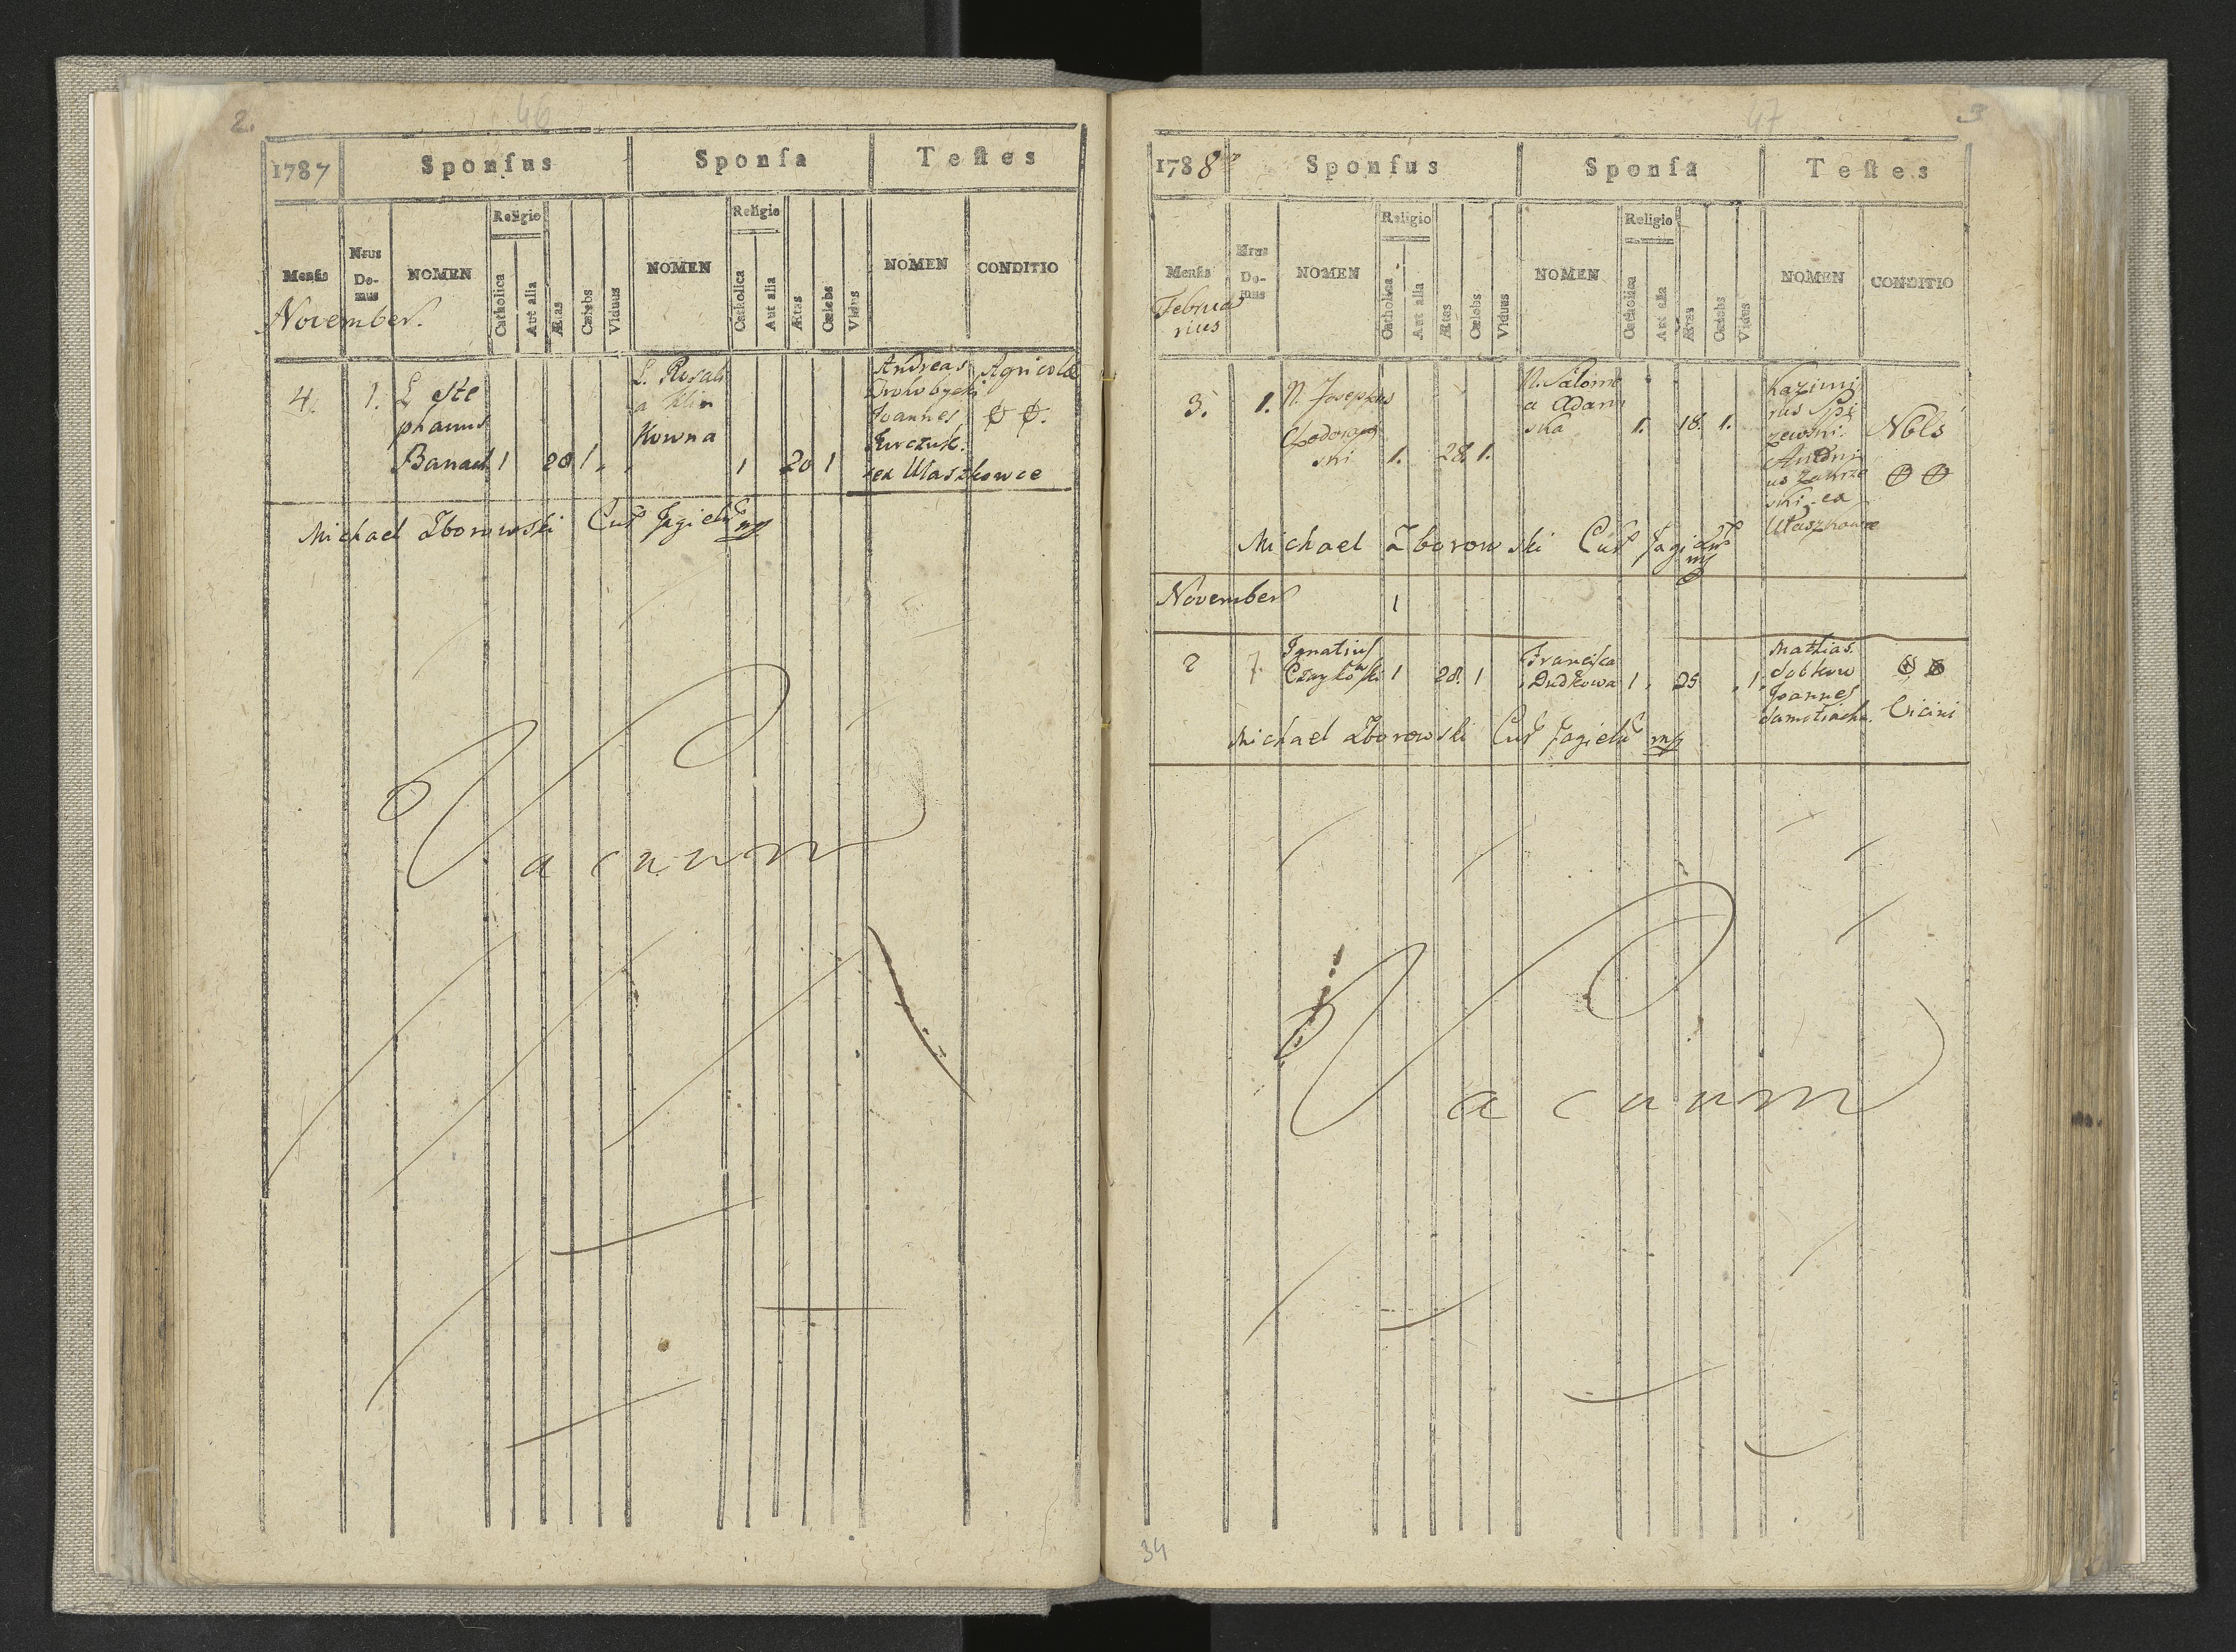 2.
46
1787 Sponſus Sponſa Teſtes
Menſis Nrus Domus NOMEN Religio Catholica Aut alia Ætas Cælebs Viduus NOMEN Religio Catholica Aut alia Ætas Cælebs Vidua NOMEN CONDITIO
November
4. 1. L Ste
phanus
Banach 1 20 1
L. Rosali
a Klin
kowna 1 20 1
Andreas Agricola
Drohobycki
Joannes
Jurczuk
ex Ułaszkowce
Michael Zborowski Cur Jagiel mp
Vacuum
47
3
1788 Sponſus Sponſa Teſtes
Menſis Nrus Domus NOMEN Religio Catholica Aut alia Ætas Cælebs Viduus NOMEN Religio Catholica Aut alia Ætas Cælebs Vidua NOMEN CONDITIO
Februa
rius
3. 1. N. Josephus
ski 1. 28. 1.
N. Salome
a Adam
ska 1. 18. 1.
Kazimi
rus
Nbls
Antoni
us Zakrze
ski ex
Ułaszkowce
Michael Zborowski Cur Jagiel mp
November 1
2 7. Ignatius
1 28. 1
Francisca
Dudkowa 1 25 1
Mattias
Joannes
Vicini
Michael Zborowski Cur Jagiel mp
Vacuum
34